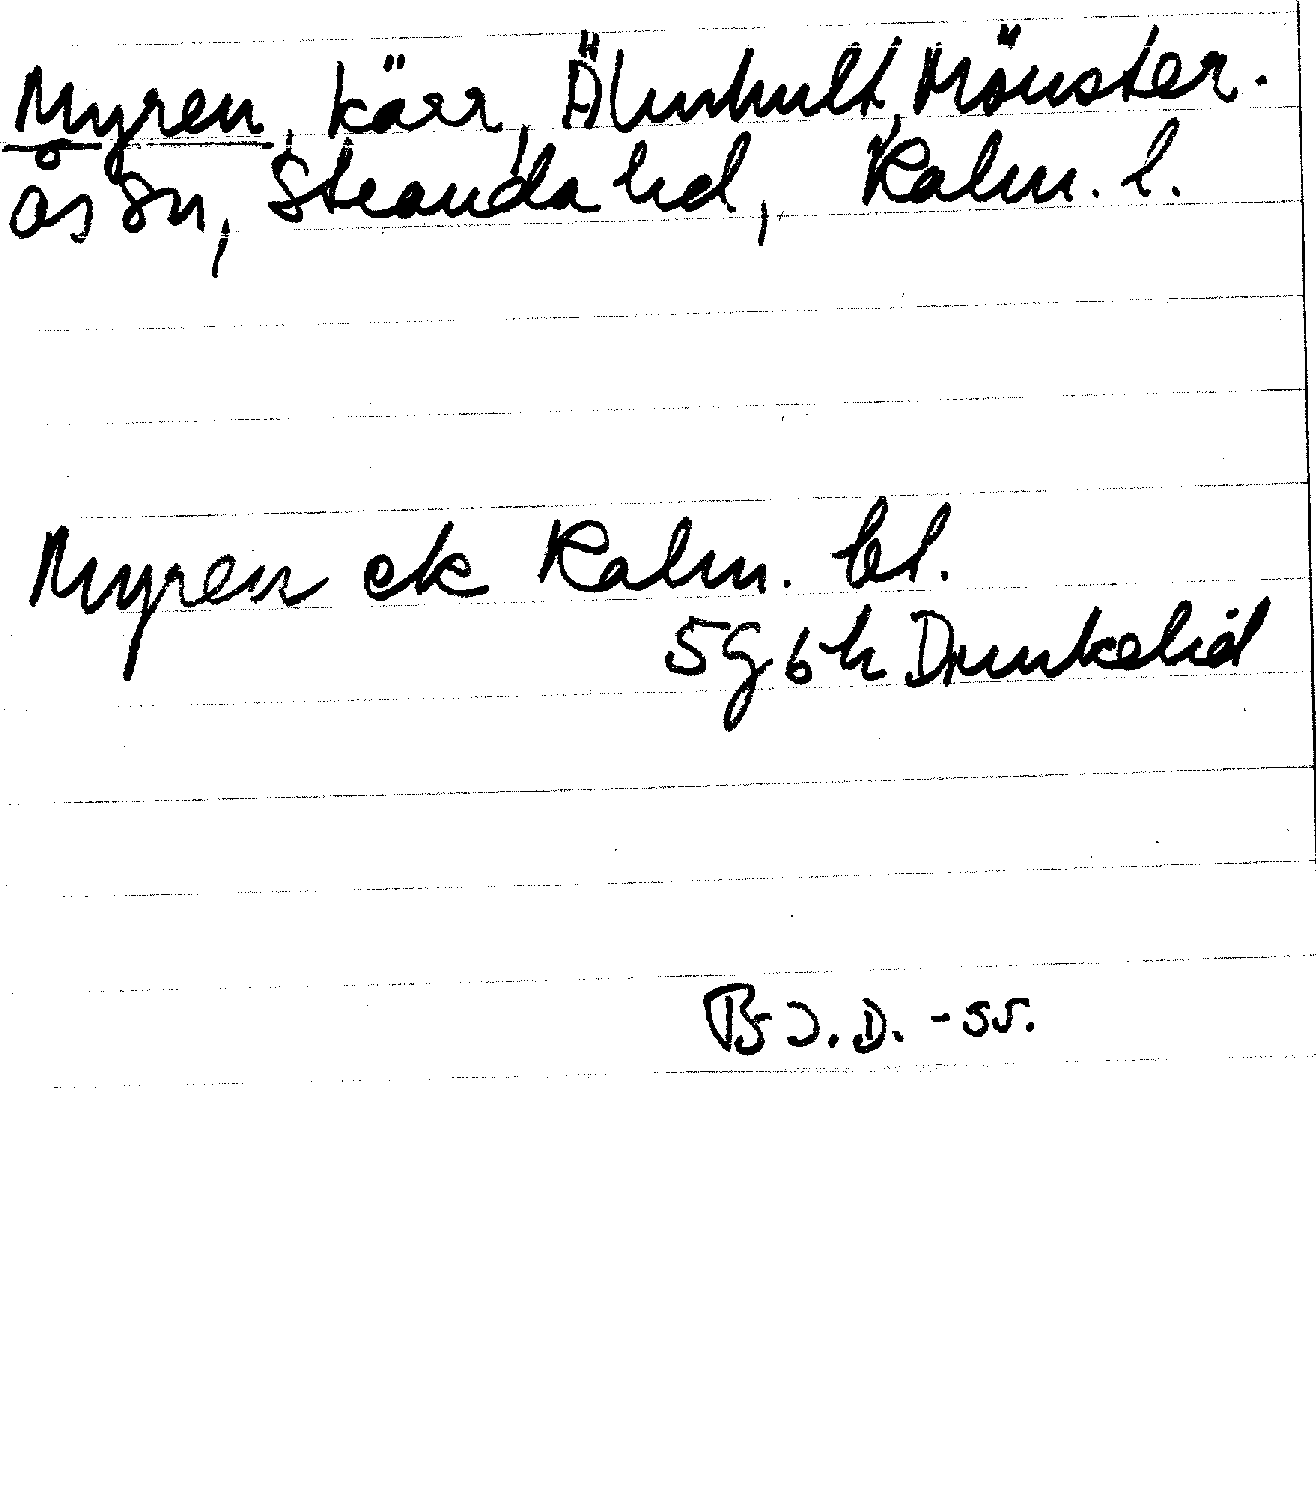 Myren, kärr, Älmhult, Mönster-
ås sn, Stranda hd, Kalm. l.
Myren ek Kalm. bl.
5G 6h Drunkelid
B J. D. -55.